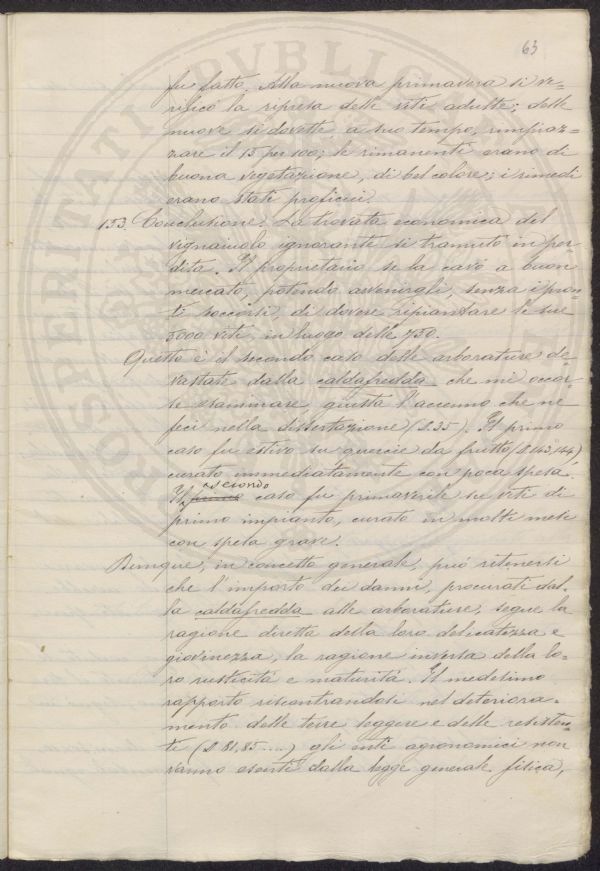 63
fu fatto. Alla nuova primavera si ve=
rificò la ripresa delle viti adulte; delle
nuove si dovette, a suo tempo, rimpiaz=
zare il 15 per 100; le rimanenti erano di
buona vegetazione, di bel colore; i rimedi
erano stati proficui.
153. Conclusione. La trovata economica del
vignaiuolo ignorante si tramutò in per=
dita. Il proprietario se la cavò a buon
mercato, potendo avvenirgli, senza i pron=
ti soccorsi, di dovere ripiantare le sue
5000 viti, in luogo delle 750.
Questo è il secondo caso delle arborature de=
vastate dalla caldafredda che mi occor=
se esaminare, giusta l'accenno che ne
feci nella dissertazione (§.35). Il primo
caso fu estivo su quercie da frutto (§.143,144),
curato immediatamente con poca spesa.
Il primo secondo caso fu primaverile su viti di
primo impianto, curato in molti mesi
con spesa grave.
Dunque, in concetto generale, può ritenersi
che l'importo dei danni, procurati dal=
la caldafredda alle arborature, segue la
ragione diretta della loro delicatezza e
giovinezza, la ragione inversa della lo=
ro rusticità e maturità. Il medesimo
rapporto riscontrandosi nel deteriora=
mento delle terre leggere e delle resisten=
ti (§ 81, 85.....) gli enti agronomici non
vanno esenti dalla legge generale fisica,
PROSPERITATI PVBLICAE